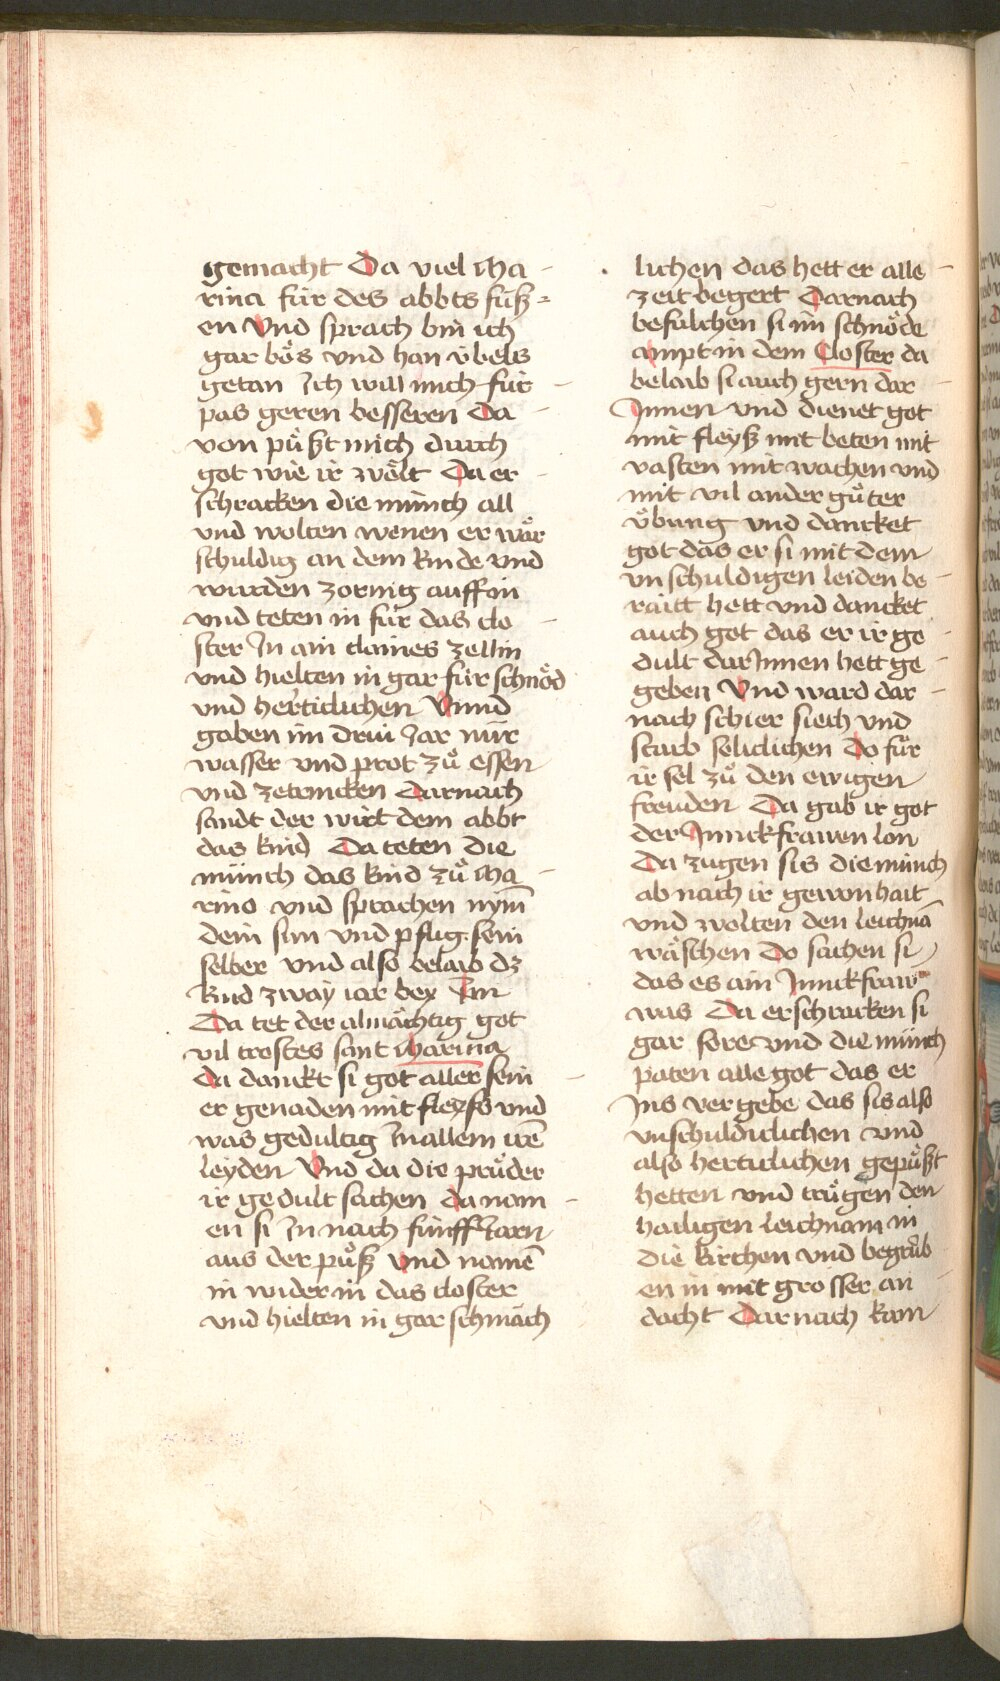 gemacht Da viel Ma-
rina für des abbts füß=
en Vnd sprach bin ich
gar bo̊s vnd han v̊bels
getan Ich will mich für-
pas geren besseren Da-
von pu̇ßt mich durch
got wie ir wo̊lt Da er-
schracken die münch all
vnd wolten wenen er wår
schuldig an dem kinde vnd
wurden zornig auff in
vnd teten in für das clo-
ster In ain claines zellin
vnd hielten in gar für schno̊d
vnd herticlichen Vnnd
gaben im driu Iar nür
wasser vnd prot zů essen
vnd zetrincken Darnach
sandt der wirt dem abbt
das kind Da teten die
münch das kind zů Ma-
rino vnd sprachen nym̄
dein sun vnd pflig sein
selber vnd also belaib dz
kind zway iar bey Im
Da tet der almåchtig got
vil trostes sant Marina
Da danckt si got aller sein-
er genaden mit fleyss vnd
was gedultig In allem irē
leyden Vnd da die průder
ir gedult sachen da nam-
en si In nach fünff Iarn
aus der půß vnd namē
in wider in das closter
vnd hielten in gar schmäch
lichen das hett er alle-
zeit begert Darnach
befulchen si im schno̊de
ampt in dem Closter da
belaib si auch gern dar-
Innen vnd dienet got
mit fleyß mit beten mit
vasten mit wachen vnd
mit vil ander gůter
v̊bung vnd dancket
got das er si mit dem
vnschuldigen leiden be-
raitt hett vnd dancket
auch got das er ir ge-
dult dar Innen hett ge-
geben Vnd ward dar-
nach schier siech vnd
starb seliclichen Do fůr
ir sel zů den ewigen
freuden Da gab ir got
der Iunckfrawen lon
Da zugen sis die münch
ab nach ir gewonhait
vnd wolten den leichnā
wåschen Do sachen si
das es ain Iunckfraw
was Da erschracken si
gar sere vnd die münch
paten alle got das er
Ins vergebe das sis also
vnschuldiclichen vnd
also herticlichen gepůßt
hetten vnd trůgen den
hailigen leichnam in
die kirchen vnd begrůb-
en in mit grosser an-
dacht Darnach kam